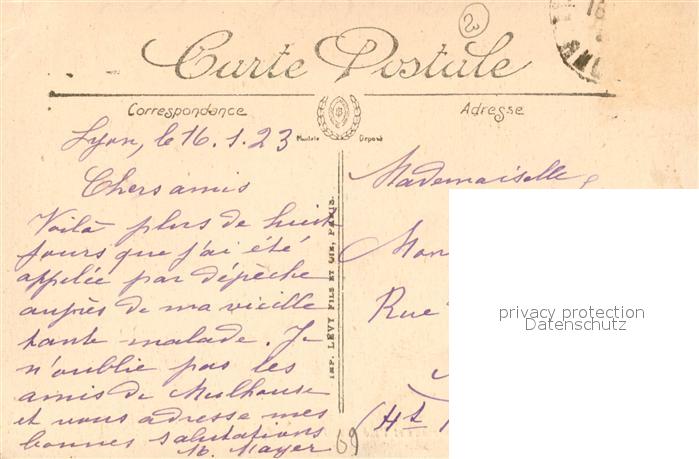 Carte Postale
Correspondance
Adresse
Modèle Déposé
Lyon, le 16.1.23
Chers amis
Voilà plus de huit
jours que j'ai été
appelée par dépêche
auprès de ma vieille
tante malade. Je
n'oublie pas les
amis de Mulhouse
et vous adresse mes
bonnes salutations
M. Mayer
69
IMP. LÉVY FILS ET CIE, PARIS.
Mademoiselle
Mon
Rue
(Ht
privacy protection
Datenschutz